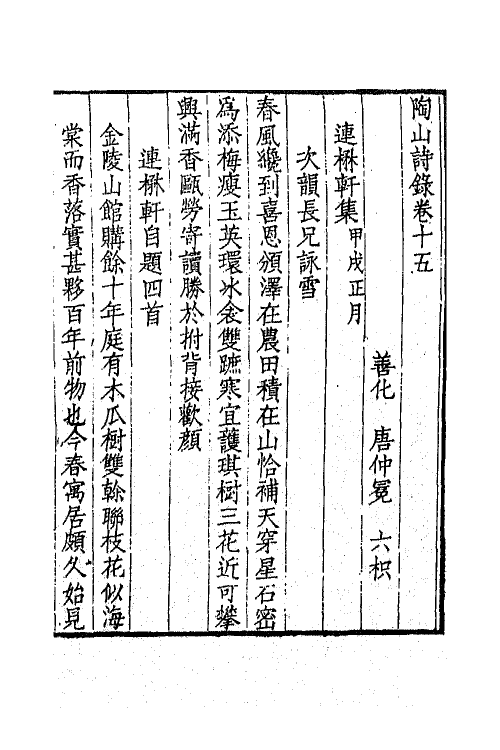 陶山詩錄卷十五
善化　唐仲冕　六枳
連楙軒集甲戌正月
次韻長兄詠雪
春風纔到喜恩頒澤在農田積在山恰補天穿星石密
爲添梅瘦玉英環冰衾雙蹠寒宜護琪樹三花近可攀
興滿香甌勞寄讀勝於拊背接歡顏
連楙軒自題四首
金陵山館購餘十年庭有木瓜樹雙榦聯枝花似海
棠而香落實甚夥百年前物也今春寓居頗久始見